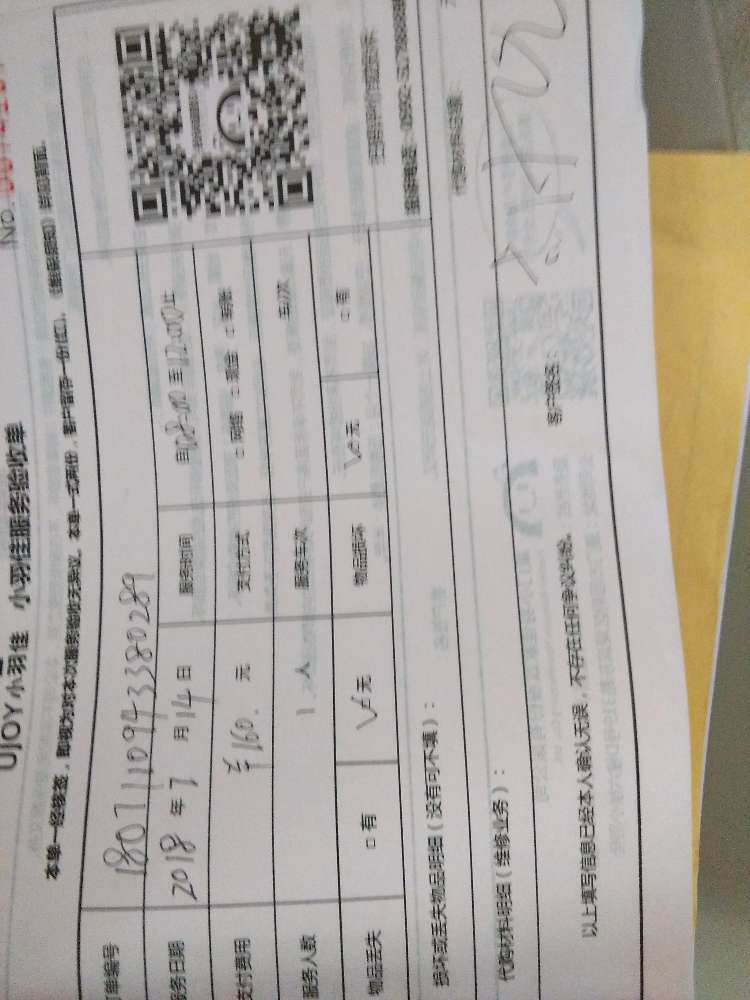 No.
UJOY小羽佳 小羽佳服务验收单
本单一经修签，即视为对本次服务验收无异议。本单一式两份，客户留存一份(红)。
单编号 1807110943380289
务日期 2018年7月14日 服务时间 08:00至12:00止
支付费用 ￥160. 元 支付方式 □网络 □现金 □转账
服务人数 1 人 服务车次 车次
物品丢失 □有 无 物品损坏 无 □有
损坏或丢失物品明细(没有可不填)：
代购材料明细(维修业务)： 代购材料总额：
以上填写信息已经本人确认无误，不存在任何争议纠纷。 客户签名：